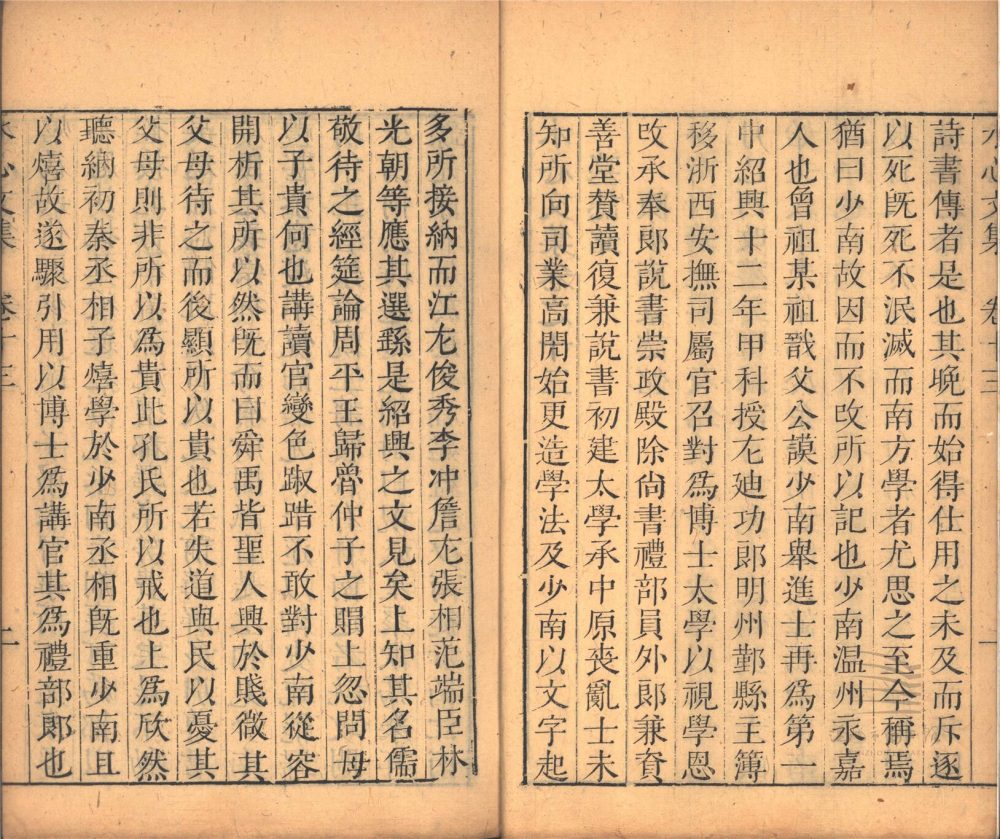 水心文集 卷十三 一
詩書傳者是也其晚而始得仕用之未及而斥逐
以死旣死不泯滅而南方學者尤思之至今稱焉
猶曰少南故因而不改所以記也少南温州永嘉
人也曾祖某祖戩父公謨少南舉進士再爲第一
中紹興十二年甲科授左廸功郎明州鄞縣主簿
移浙西安撫司屬官召對爲博士太學以視學恩
改承奉郎說書崇政殿除尚書禮部員外郎兼資
善堂贊讀復兼說書初建太學承中原喪亂士未
知所向司業高閌始更造學法及少南以文字起
多所接納而江左俊秀李冲詹左張相范端臣林
光朝等應其選繇是紹興之文見矣上知其名儒
敬待之經筵論周平王歸魯仲子之賵上忽問母
以子貴何也講讀官變色踧踖不敢對少南從容
開析其所以然旣而曰舜禹皆聖人興於賤微其
父母待之而後顯所以貴也若失道與民以憂其
父母則非所以爲貴此孔氏所以戒也上爲欣然
聽納初秦丞相子熺學於少南丞相旣重少南且
以熺故遂驟引用以博士爲講官其爲禮部郎也
水心文集 卷十三 二